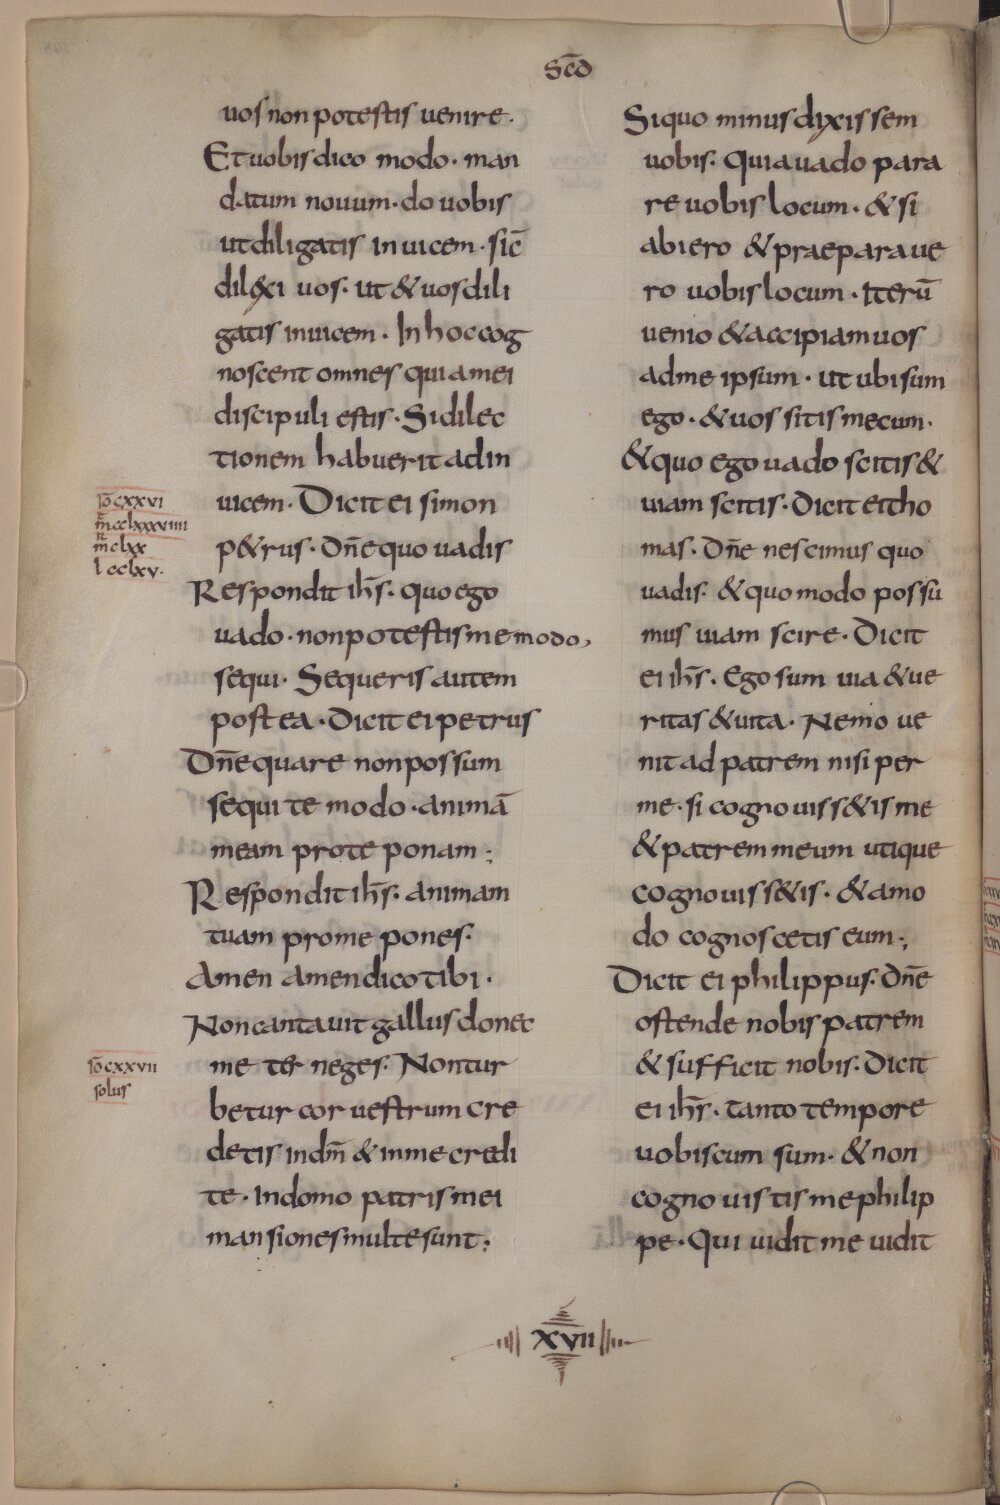 Scđ
uos non potestis uenire.
Et uobis dico modo · man
datum nouum · do uobis
ut diligatis inuicem · sic̄
dilexi uos · ut & uos dili
gatis inuicem · In hoc cog
noscent omnes quia mei
discipuli estis · Si dilec
tionem habuerit ad in
uicem · Dicit ei simon
p&rus · Dn̄e quo uadis
Respondit ih̄s · quo ego
uado · non potestis me modo,
sequi · Sequeris autem
postea · Dicit ei petrus
Dn̄e quare non possum
sequi te modo · animā
meam pro te ponam ;
Respondit ih̄s · animam
tuam pro me pones ·
Amen amen dico tibi ·
Non cantauit gallus donec
me ter neges · Non tur
betur cor uestrum cre
detis in dm̄ & in me credi
te · In domo patris mei
mansiones multe sunt ;
sō cxxvi
m cclxxxviiii
m clxx
l cclxv ·
sō cxxvii
solus
Si quo minus dixissem
uobis · Quia uado para
re uobis locum · & si
abiero & praeparaue
ro uobis locum · Iterū
uenio & accipiam uos
ad me ipsum · ut ubi sum
ego · & uos sitis mecum ·
& quo ego uado scitis &
uiam scitis · Dicit ei tho
mas · Dn̄e nescimus quo
uadis · & quomodo possu
mus uiam scire · Dicit
ei ih̄s · Ego sum uia & ue
ritas & uita · Nemo ue
nit ad patrem nisi per
me · si cognouiss&is me
& patrem meum utique
cognouiss&is · & amo
do cognoscetis eum ;
Dicit ei philippus · Dn̄e
ostende nobis patrem
& sufficit nobis · Dicit
ei ih̄s · tanto tempore
uobiscum sum · & non
cognouistis me philip
pe · Qui uidit me uidit
XVII